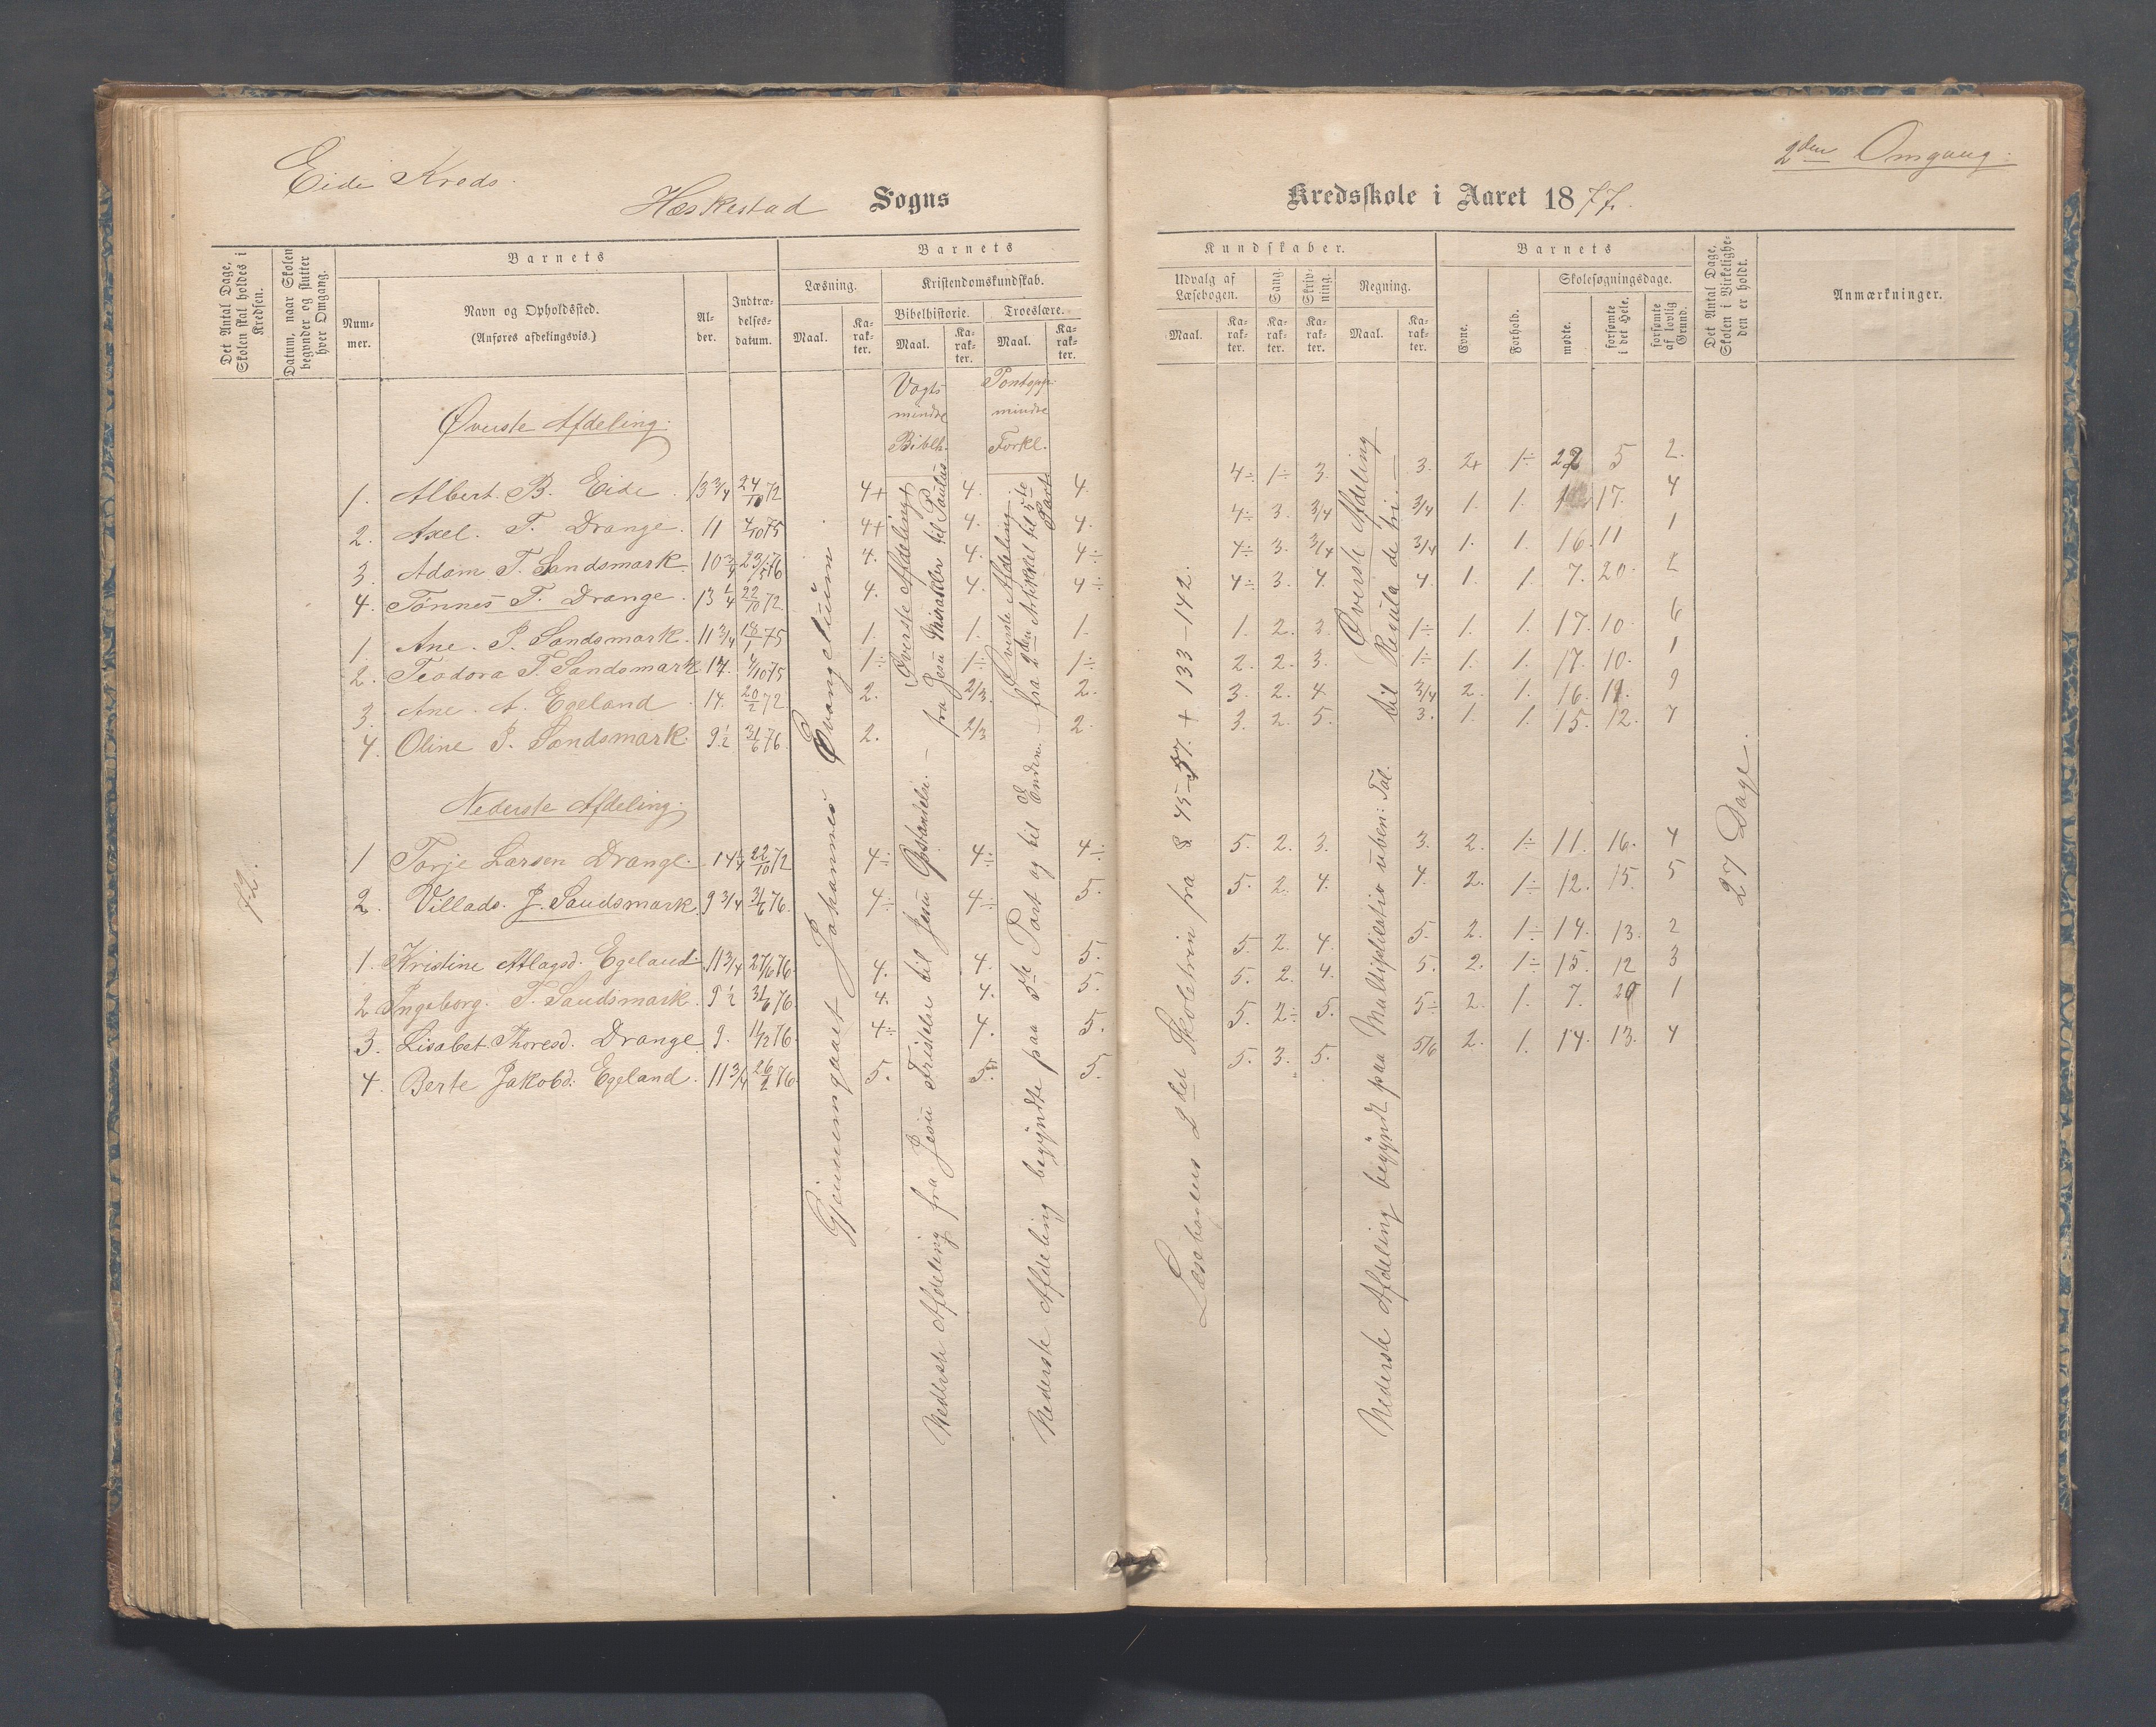 Eide Kreds.
2den Omgang.
Heskestad Sogns Kredsskole i Aaret 1877.
Det Antal Dage, Skolen skal holdes i Kredsen.
Datum, naar Skolen begynder og slutter hver Omgang.
Barnets
Nummer.
Navn og Opholdssted. (Anføres afdelingsvis.)
Alder.
Indtrædelsesdatum.
Barnets
Læsning.
Maal.
Karakter.
Kristendomskundskab.
Bibelhistorie.
Maal.
Karakter.
Troeslære.
Maal.
Karakter.
Kundskaber.
Udvalg af Læsebogen.
Maal.
Karakter.
Sang.
Karakter.
Skrivning.
Karakter.
Regning.
Maal.
Karakter.
Barnets
Evne.
Forhold.
Skolesøgningsdage.
mødte.
forsømte i det Hele.
forsømte af lovlig Grund.
Det Antal Dage, Skolen i Virkeligheden er holdt.
Anmærkninger.
Vogts mindre Biblh.
Pontopp. mindre Forkl.
Øverste Afdeling.
1. Albert B. Eide. 13 3/4 24/10 72 4+ 4. 4. 4÷ 1÷ 3. 3. 2+ 1÷ 22 5 2.
2. Axel T. Drange. 11 4/10 75 4+ 4. 4. 4÷ 3. 3/4 3/4 1. 1. 17. 4
3. Adam T. Sandsmark. 10 3/4 23/5 76 4. 4. 4÷ 4÷ 3. 3/4 3/4 1. 1. 16. 11 1
4. Tønnes T. Drange. 13 1/4 22/10 72 4. 4. 4÷ 4÷ 3. 4. 4. 1. 1. 7. 20. 2
1. Ane P. Sandsmark. 11 3/4 18/1 75 1. 1. 1. 1. 2. 3. 1÷ 1. 1. 17. 10. 6
2. Teodora T. Sandsmark 14. 4/10 75 1÷ 1÷ 1÷ 2. 2. 3. 1÷ 1. 1. 17. 10. 1
3. Ane A. Egeland. 14. 20/2 72 2. 2/3 2. 3. 2. 4. 3/4 2. 1. 16. 11. 9
4. Oline P. Sandsmark. 9 1/2 31/6 76. 2. 2/3 2. 3. 2. 5. 3. 1. 1. 15. 12. 7
Nederste Afdeling.
1 Torje Larsen Drange. 14 1/4 22/10 72 4÷ 4÷ 4÷ 5. 2. 3. 3. 2. 1÷ 11. 16. 4
2. Villads J. Sandsmark. 9 3/4 31/6 76. 4÷ 4÷ 5. 5. 2. 4. 4. 2. 1÷ 12. 15. 5
1. Kristine Atlagsd. Egeland. 11 3/4 27/6 76. 4. 4. 5. 5. 2. 4. 5. 2. 1÷ 14. 13. 2
2 Ingeborg T. Sandsmark. 9 1/2 31/6 76. 4. 4. 5. 5. 2. 4. 5. 2. 1÷ 15. 12 3
3. Lisabet Thoresd. Drange 9. 11/2 76. 4÷ 4. 5. 5. 2÷ 5. 5÷ 2. 1. 7. 20 1
4. Berte Jakobd. Egeland. 11 3/4 26/2 76. 5. 5. 5. 5. 3. 5. 5/6 2. 1. 14. 13. 4
72.
Gjennemgaaet Johannes Evangelium.
Øverste Afdeling fra Jesu Mirakler til Paulus
Nederste Afdeling fra Jesu Fristelse til Jesu Opstandelse.
Øverste Afdeling fra 2den Artikkel til 5te Part
Nederste Afdeling begyndte paa 5te Part og til Enden.
Læsebogens 2det Skoletrin fra § 45-57. + 133-142.
Øverste Afdeling til Regula de tri.
Nederste Afdeling begyndt paa Multiplicatio uben: Tal.
27 Dage.